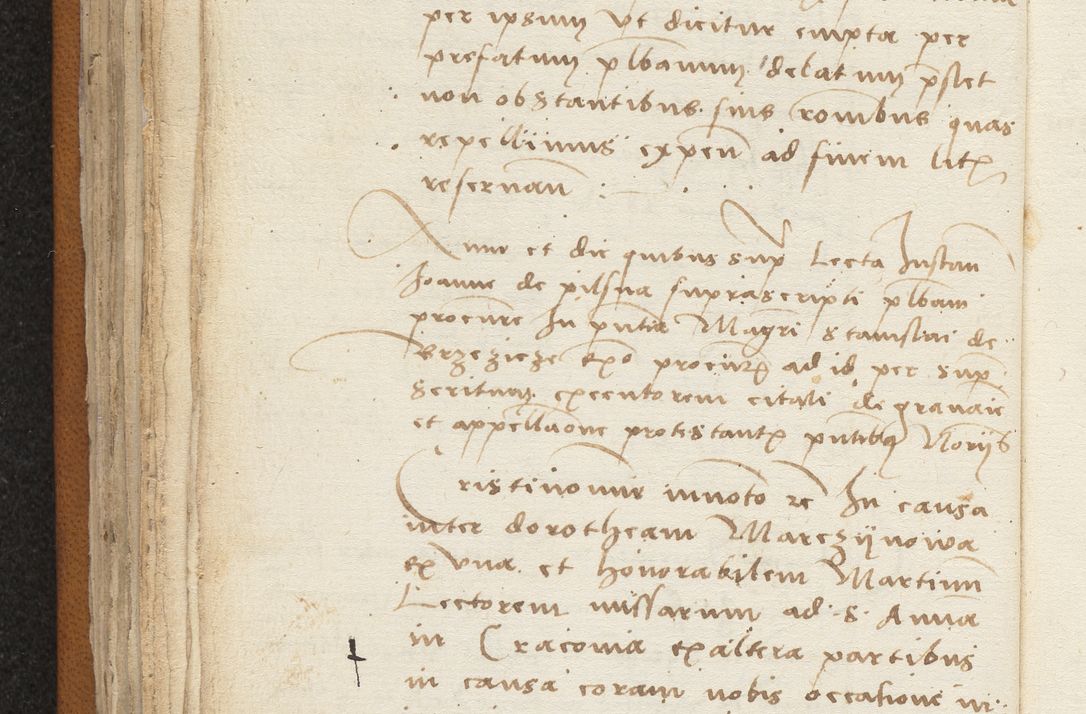 per ipsum vt dicitur empta per
prefatum plbanum delatum pstet
non obstantibus suis ronibus quas
repellimus expen ad finem litis
reseruan
Anno et die quibus supra Lecta Instan
Joanne de pilsna suprascripti plbani
procure In pntia Magri Stanislai de
Brzezicze ex procur ad id per supra
scritum executorem citati de grauaie
et appellaone protestant pntibus Norijs
Cristi nomine inuocato re In causa
inter dorotheam Marczijnowa
ex vna et honorabilem Martinum
Lectorem missarum ad S Anna
in Cracouia ex altera partibus
in causa coram nobis occasione in